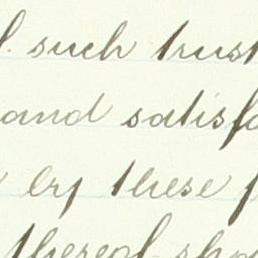 such trust
and satisfa
by these
thereof sho